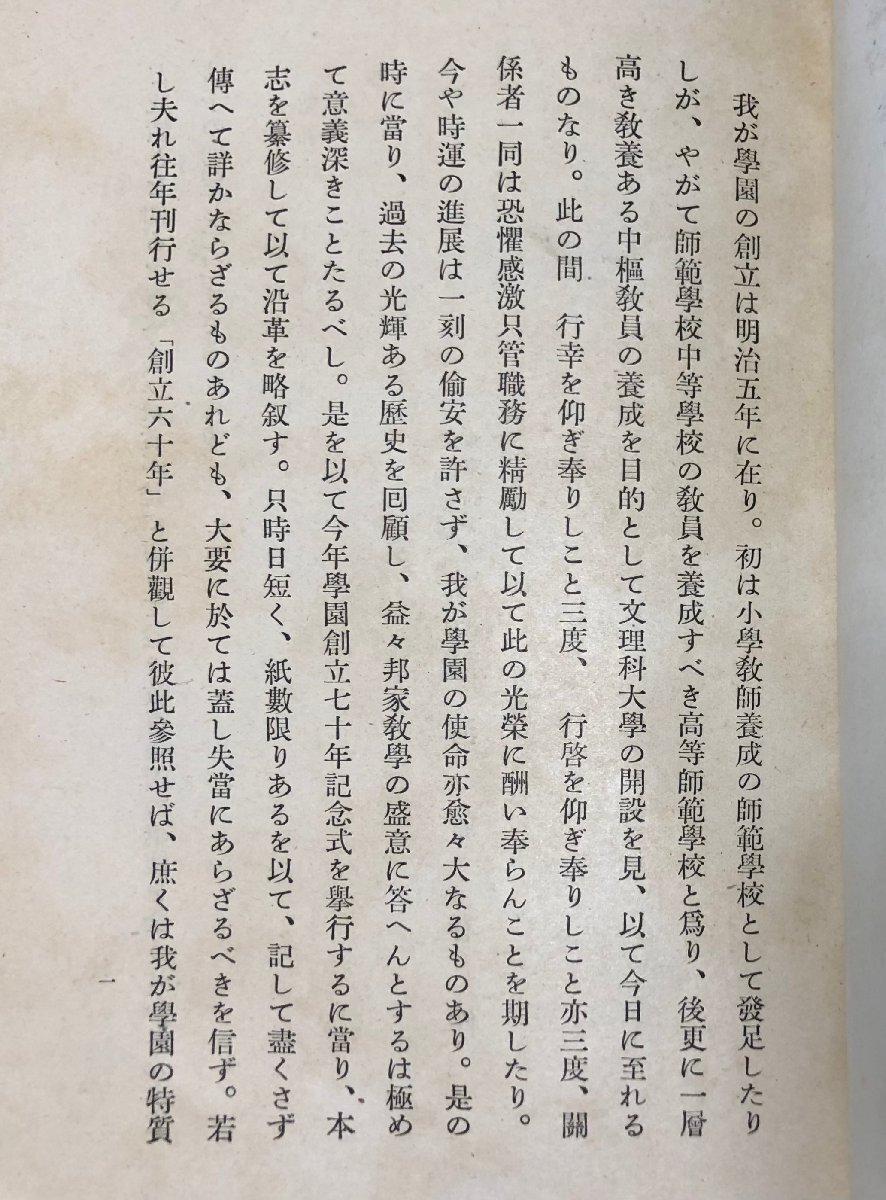 我が學園の創立は明治五年に在り。初は小學敎師養成の師範學校として發足したり
しが、やがて師範學校中等學校の敎員を養成すべき高等師範學校と爲り、後更に一層
高き敎養ある中樞敎員の養成を目的として文理科大學の開設を見、以て今日に至れる
ものなり。此の間　行幸を仰ぎ奉りしこと三度、　行啓を仰ぎ奉りしこと亦三度、關
係者一同は恐懼感激只管職務に精勵して以て此の光榮に酬い奉らんことを期したり。
今や時運の進展は一刻の偷安を許さず、我が學園の使命亦愈々大なるものあり。是の
時に當り、過去の光輝ある歷史を回顧し、益々邦家敎學の盛意に答へんとするは極め
て意義深きことたるべし。是を以て今年學園創立七十年記念式を擧行するに當り、本
志を纂修して以て沿革を略叙す。只時日短く、紙數限りあるを以て、記して盡くさず
傳へて詳かならざるものあれども、大要に於ては蓋し失當にあらざるべきを信ず。若
し夫れ往年刊行せる「創立六十年」と併觀して彼此參照せば、庶くは我が學園の特質
一